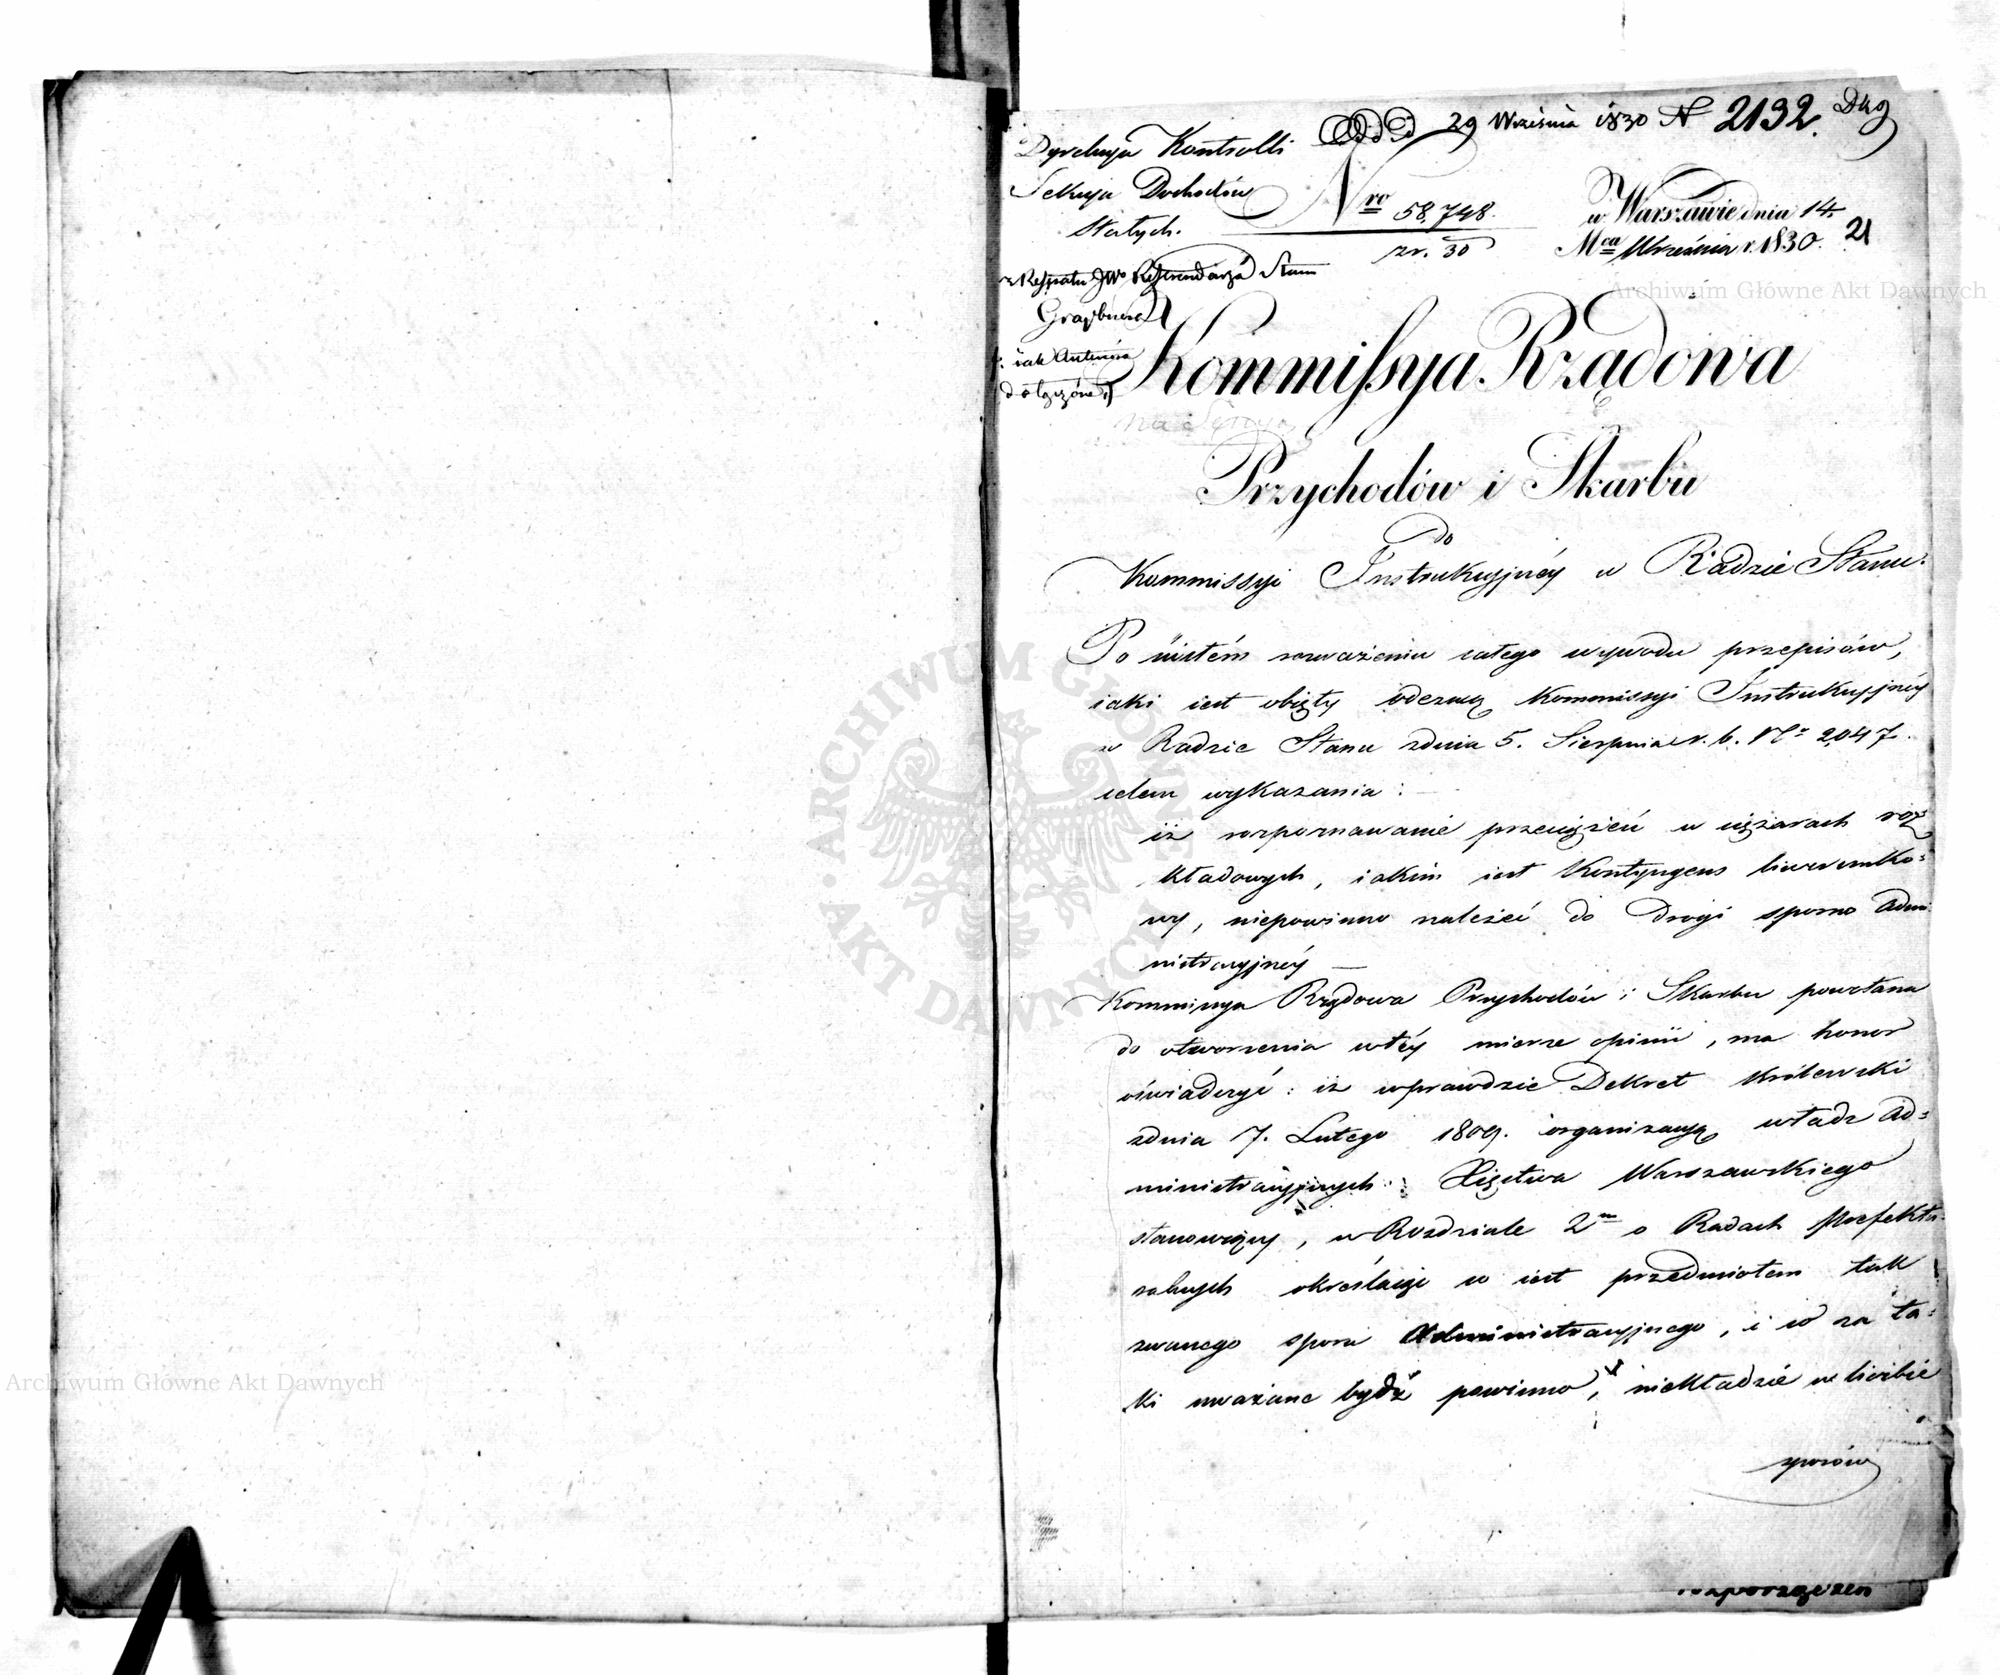 29 Września 1830 N 2192.
Dyrekcyja Kontrolli
Sekcyja Dochodów
Stałych.
Nro 58,748.
zr. 30
w Warszawie dnia 14.
Mca Września r. 1830.
21
z Respntu JWo Referendarza Stanu
Grąbiewsk
: iak Antéria
dołączone :
Kommissya Rządowa
Przychodów i Skarbu
do
Kommissyi Instrukcyjnéy w Radzie Stanu.
Po ścisłém rozważeniu całego wywodu przepisów,
iaki iest obięty odezwą Kommissyi Instrukcyjnéy
w Radzie Stanu zdnia 5. Sierpnia r. b. No 2047.
celem wykazania :
iż rozpoznawanie przeciążeń w ciężarach roz
kładowych, iakim iest Kontyngens liwerunko=
wy, niepowinno należeć do Drogi sporno Admi
nistracyjnéy —
Kommissya Rządowa Przychodów i Skarbu powołana
do otworzenia wtéy mierze opinii, ma honor
oświadczyć : iż wprawdzie Dekret Królewski
zdnia 7. Lutego 1809. organizacyą władz Ad=
ministracyjnych Xięstwa Warszawskiego
stanowiący, w Rozdziale 2m o Radach Prefektu=
ralnych określaiąc co iest przedmiotem tak
zwanego sporu Administracyjnego, i co za ta=
ki uważane bydź powinno, niekładzie w liczbie
sporów
rozporządzen
Archiwum Główne Akt Dawnych
Archiwum Główne Akt Dawnych
ARCHIWUM GŁÓWNE AKT DAWNYCH